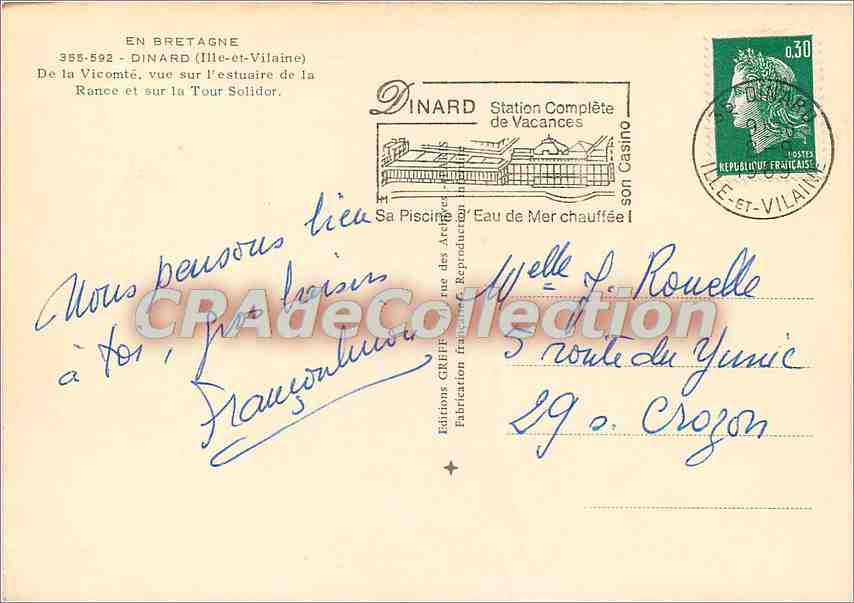 EN BRETAGNE
355-592 - DINARD (Ille-et-Vilaine)
De la Vicomté, vue sur l'estuaire de la
Rance et sur la Tour Solidor.
DINARD Station Complète
de Vacances
son Casino
Sa Piscine d'Eau de Mer chauffée
0,30
POSTES
REPUBLIQUE FRANÇAISE
35 DINARD
1969
ILLE-ET-VILAINE
Nous pensons bien
à toi, gros baisers
Editions GREFF rue des Archives
Fabrication française. Reproduction
Melle J. Rouelle
5 route du Yunic
29 s. Crozon
CRAdeCollection